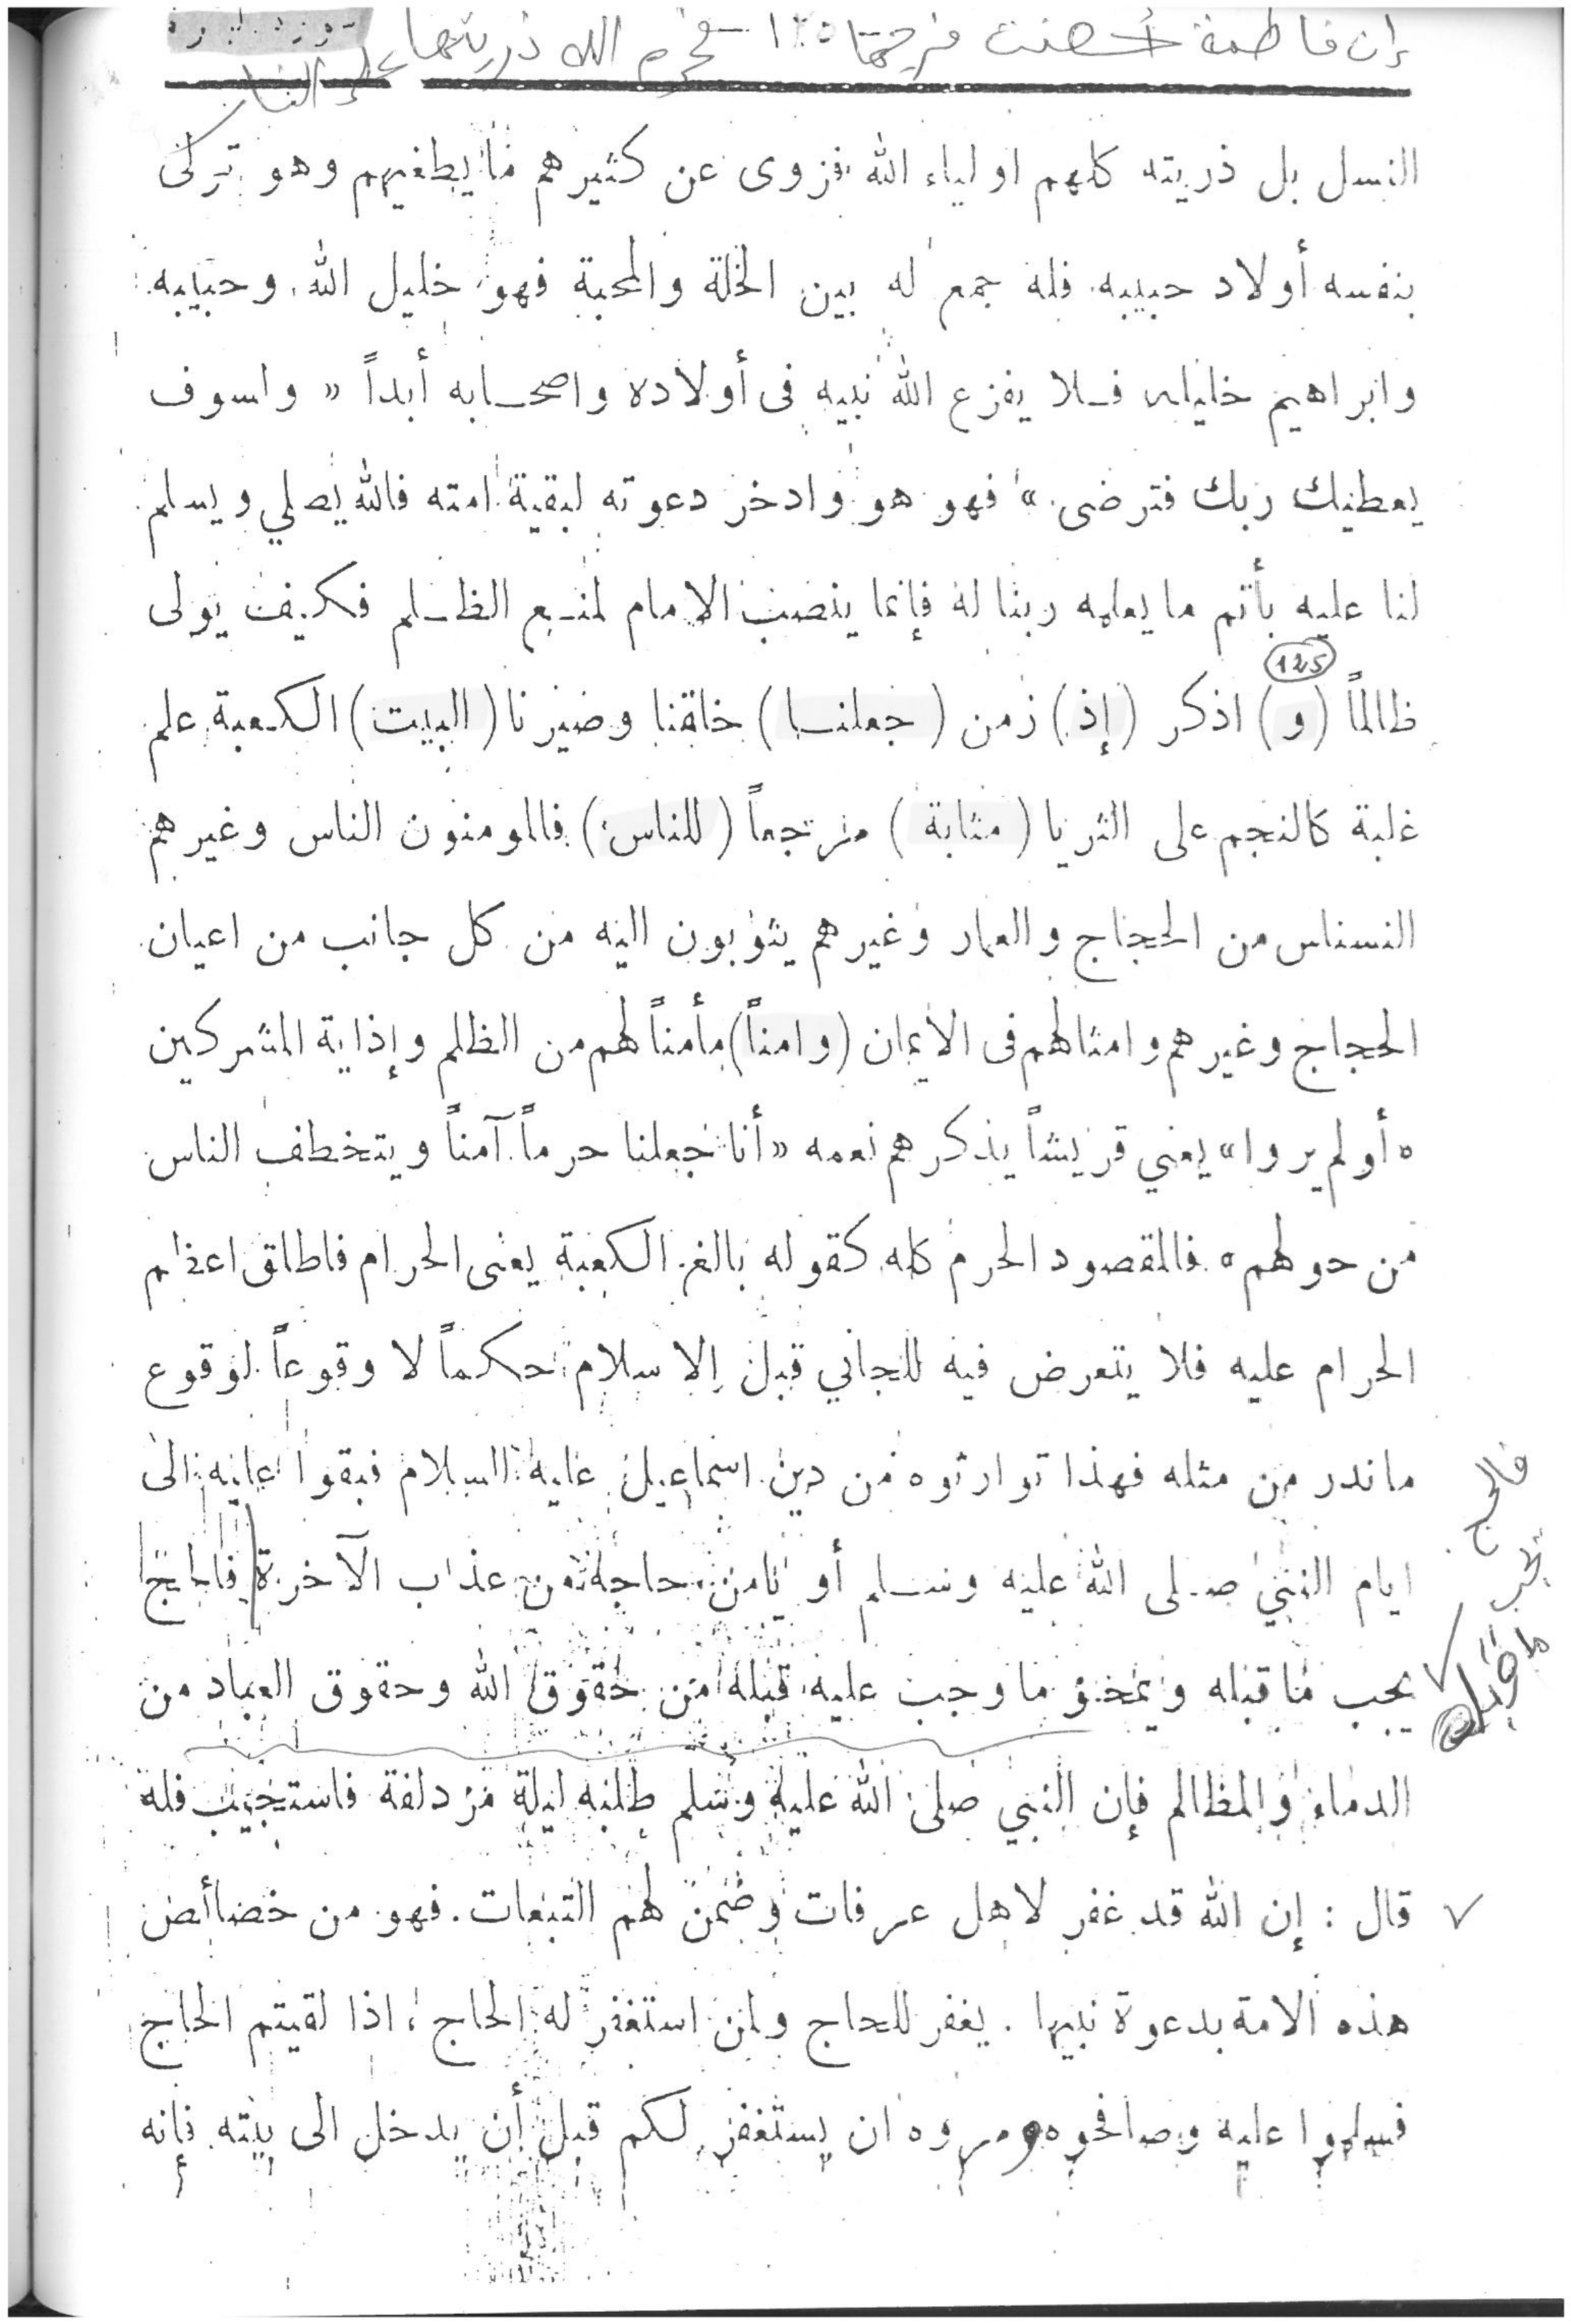 إن فاطمة أحصنت فرجها ١٢٥ فحرم الله ذريتها على النار
النسل بل ذريته كلهم اولياء الله فزوى عن كثيرهم ما يطغيهم وهو تولى
بنفسه أولاد حبيبه فله جمع له بين الخلة والمحبة فهو خليل الله وحبيبه
وابراهيم خليله فلا يفزع الله نبيه فى أولاده واصحابه أبداً « واسوف
يعطيك ربك فترضى » فهو هو وادخر دعوته لبقية امته فالله يصلي ويسلم
لنا عليه بأتم ما يعلمه ربنا له فإنما ينصب الامام لمنع الظلم فكيف يولى
125
ظالماً (و) اذكر (إذ) زمن (جعلنا) خلقنا وصيرنا (البيت) الكعبة علم
غلبة كالنجم على الثريا (مثابة) مرجعاً (للناس) فالمومنون الناس وغيرهم
النسناس من الحجاج والعمار وغيرهم يثوبون اليه من كل جانب من اعيان
الحجاج وغيرهم وامثالهم فى الايمان (وامناً) مأمناً لهم من الظلم وإذاية المشركين
« أولم يروا » يعني قريشاً يذكرهم نعمه « أنا جعلنا حرماً آمناً ويتخطف الناس
من حولهم » فالمقصود الحرم كله كقوله بالغ الكعبة يعنى الحرام فاطلق اعظم
الحرام عليه فلا يتعرض فيه للجاني قبل الاسلام حكماً لا وقوعاً لوقوع
ما ندر من مثله فهذا توارثوه من دين اسماعيل عليه السلام فبقوا عليه الى
ايام النبي صلى الله عليه وسلم أو يامن حاجه من عذاب الآخرة فالحج
يجب ما قبله ويمحو ما وجب عليه قبله من حقوق الله وحقوق العباد من
الدماء والمظالم فإن النبي صلى الله عليه وسلم طلبه ليلة مزدلفة فاستجيب فله
قال : إن الله قد غفر لاهل عرفات وضمن لهم التبعات . فهو من خصائص
هذه الامة بدعوة نبيها . يغفر للحاج ولمن استغفر له الحاج ، اذا لقيتم الحاج
فسلموا عليه وصافحوه ومروه ان يستغفر لكم قبل أن يدخل الى بيته فإنه
فالحج
يجب
ما قبله